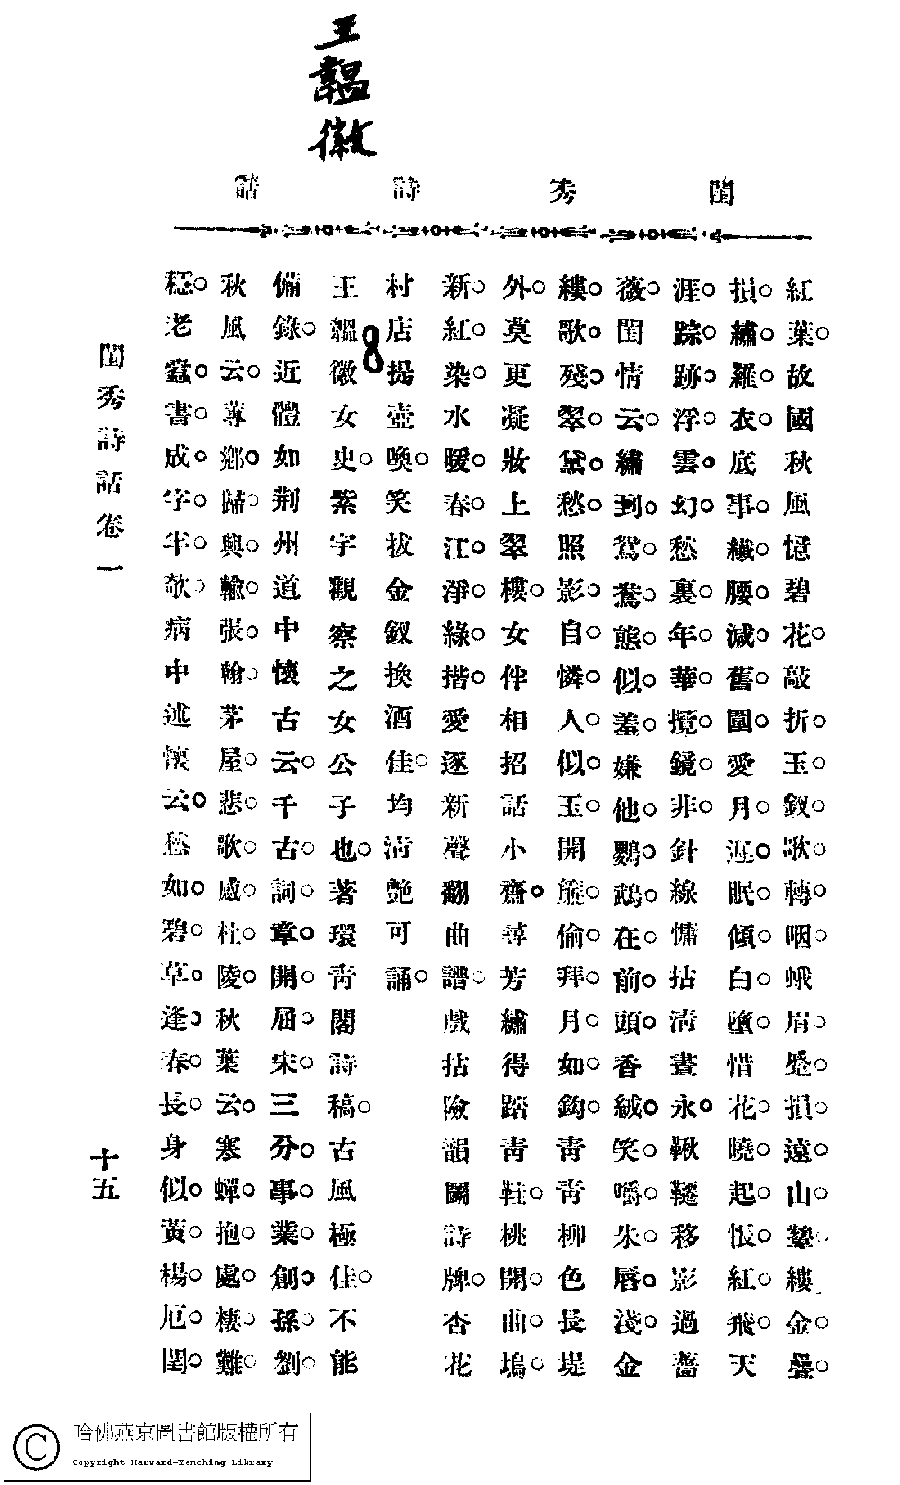 王韞徽
閨秀詩話
紅葉故國秋風憶碧花敲折玉釵歌轉咽蛾眉蹙損遠山黛縷金疊
損繡羅衣底事纖腰減舊圍愛月遲眠傾白墮惜花曉起悵紅飛天
涯踪跡浮雲幻愁裏年華攬鏡非針線慵拈清晝永鞦韆移影過薔
薇閨情云繡到鴛鴦態似羞嫌他鸚鵡在前頭香絨笑嚼朱唇淺金
縷歌殘翠黛愁照影自憐人似玉開簾偷拜月如鈎青青柳色長堤
外莫更凝妝上翠樓女伴相招話小齋尋芳繡得踏青鞋桃開曲塢
新紅染水暖春江淨綠揩愛逐新聲翻曲譜戲拈險韻鬬詩牌杏花
村店提壺喚笑拔金釵換酒佳均清艷可誦
8
王韞徽女史紫宇觀察之女公子也著環青閣詩稿古風極佳不能
備錄近體如荆州道中懷古云千古詞章開屈宋三分事業創孫劉
秋風云蓴鄉歸興輸張翰茅屋悲歌感杜陵秋葉云寒蟬抱處棲難
穩老蠹書成字半欹病中述懷云愁如碧草逢春長身似黃楊厄閏
閨秀詩話卷一
十五
哈佛燕京圖書館版權所有
Copyright Harvard-Yenching Library